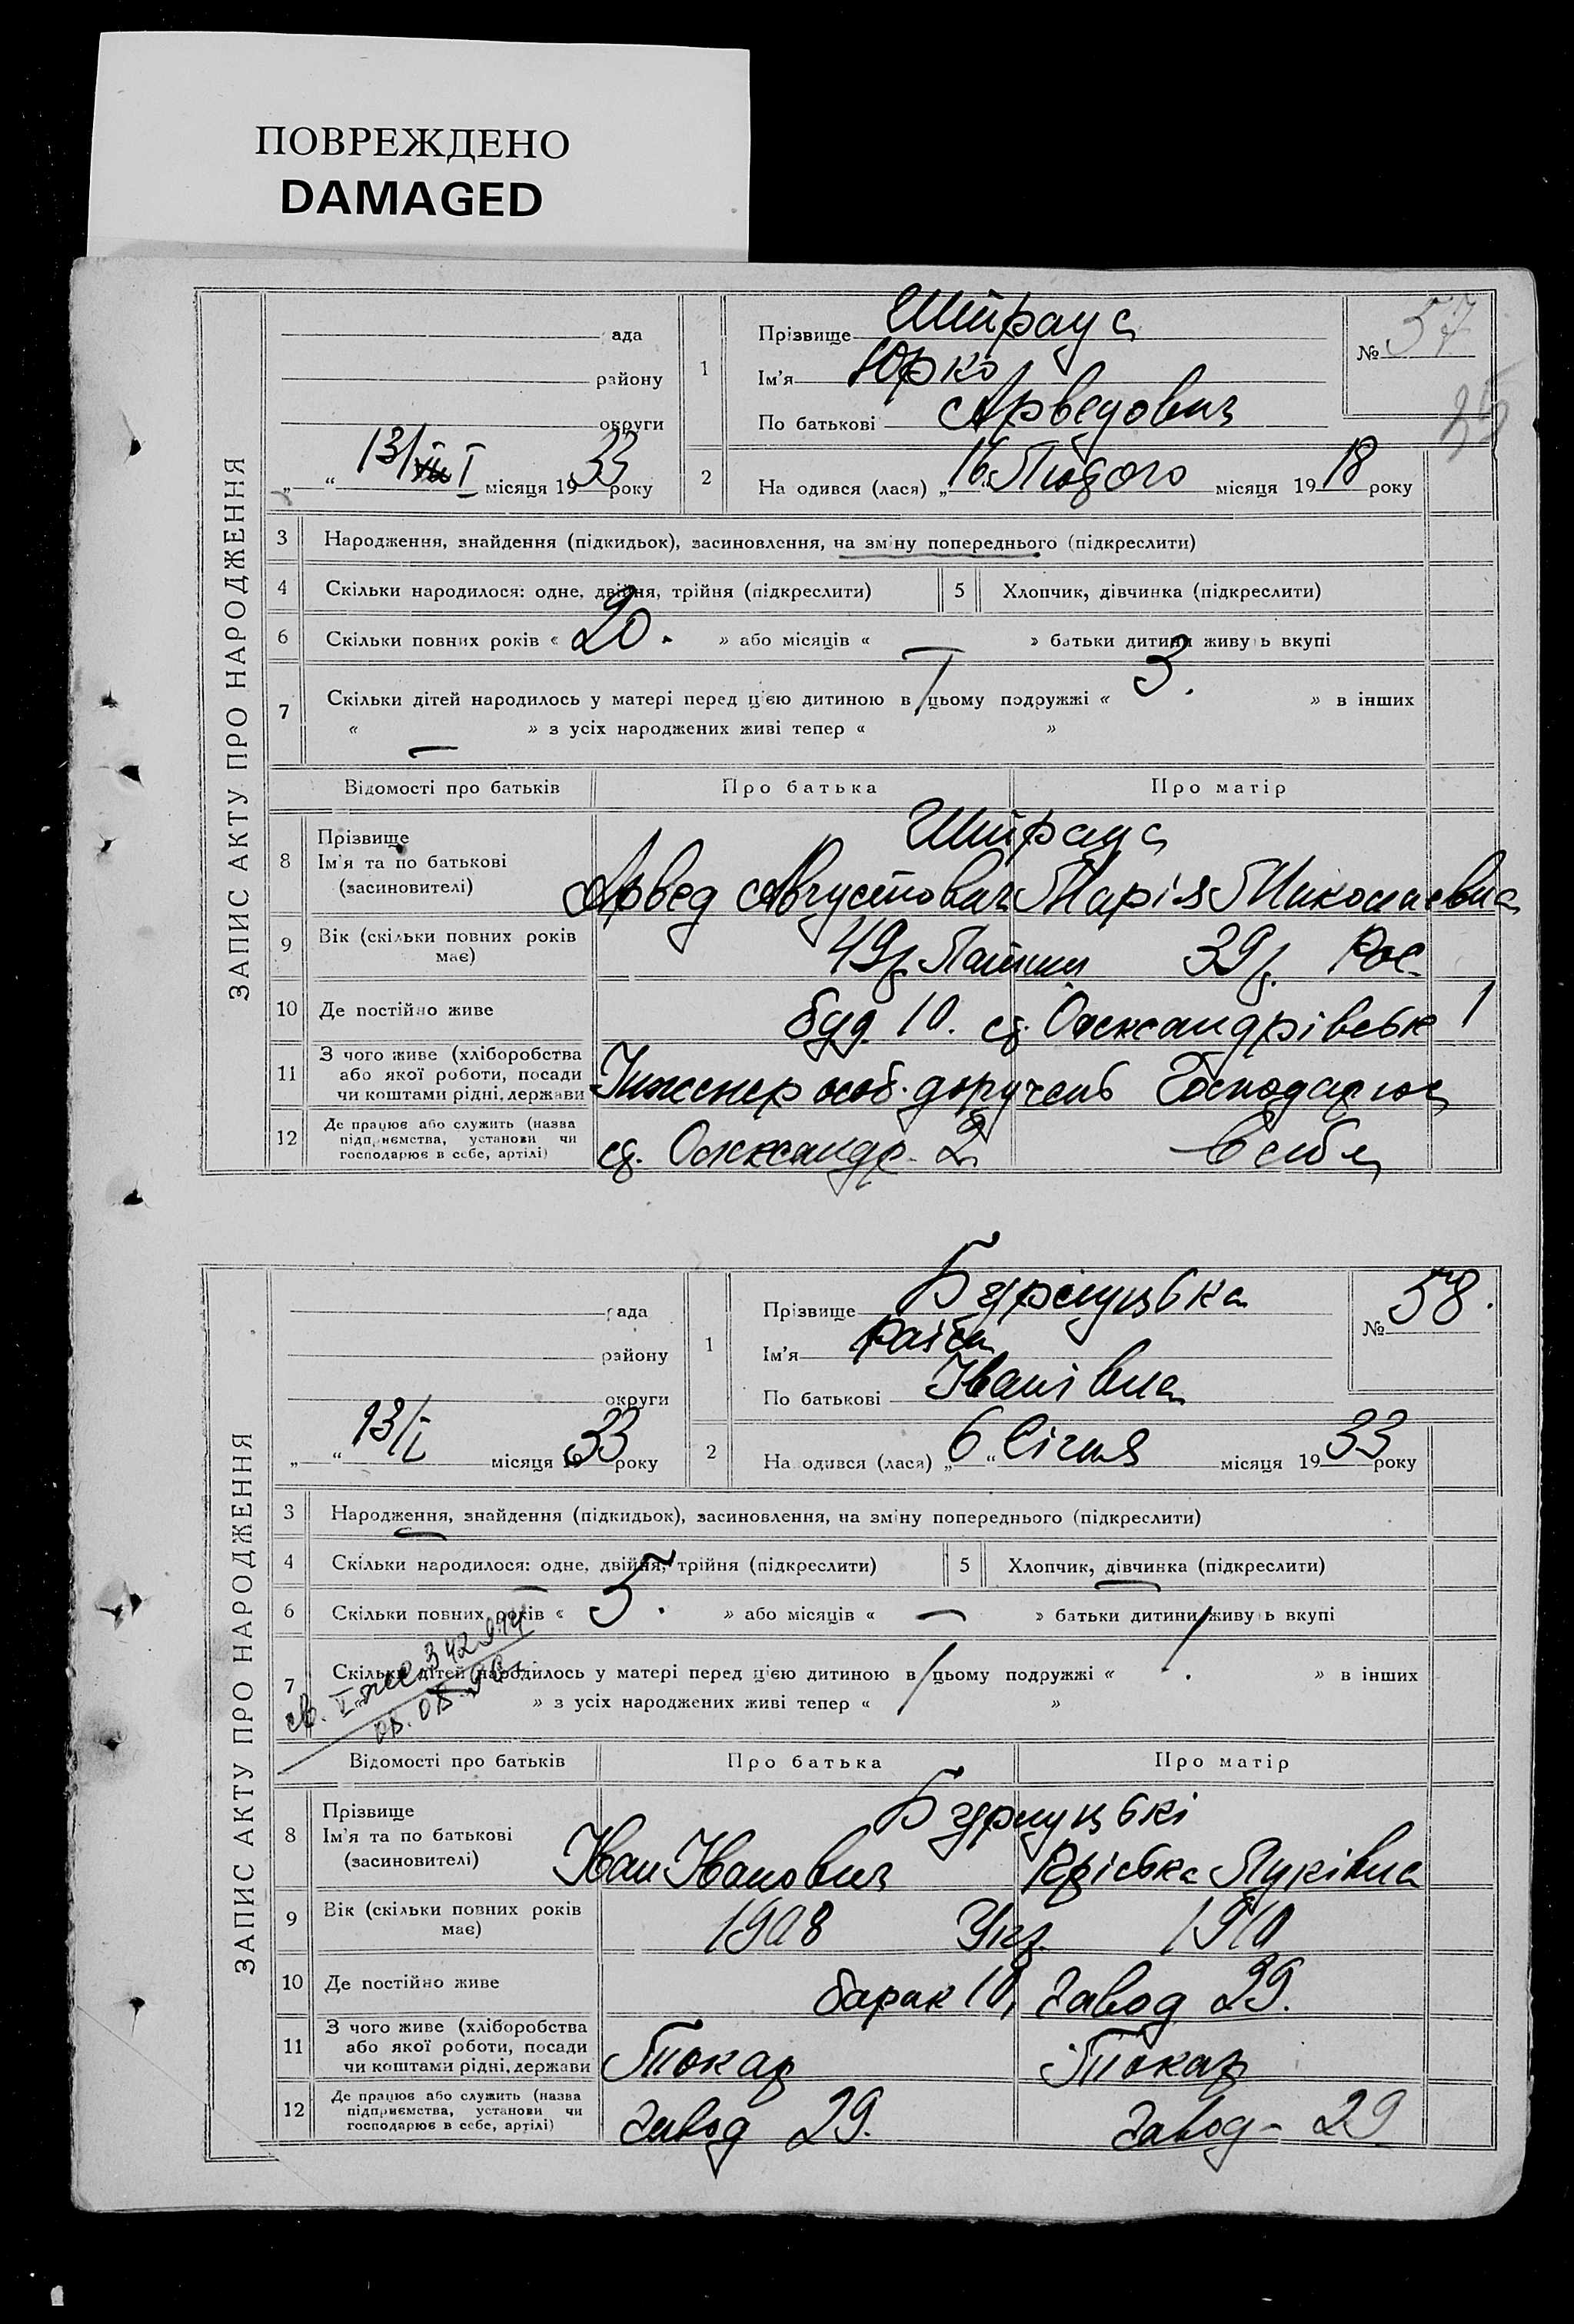 ПОВРЕЖДЕНО
DAMAGED
ЗАПИС АКТУ ПРО НАРОДЖЕННЯ
ада
району
округи
„ “ 13/I місяця 1933 року
1
Прізвище Штраус
Ім'я Юрко
По батькові Арведович
№ 57
2 На одився (лася) „16“ Лютого місяця 1918 року
3 Народження, знайдення (підкидьок), засиновлення, на зміну попереднього (підкреслити)
4 Скільки народилося: одне, двійня, трійня (підкреслити) 5 Хлопчик, дівчинка (підкреслити)
6 Скільки повних років « 20. » або місяців « » батьки дитини живу ь вкупі
7 Скільки дітей народилось у матері перед цією дитиною в цьому подружжі « 3. » в інших
« — » з усіх народжених живі тепер « »
Відомості про батьків Про батька Про матір
8 Прізвище Штраус
Ім'я та по батькові Арвед Августович Марія Миколаевна
(засновителі)
9 Вік (скільки повних років має) 49р. Латиш 39р. Рос.
10 Де постійно живе буд. 10. ст. Олександрівськ 1
11 З чого живе (хліборобства або якої роботи, посади чи коштами рідні, держави Інженер особ. доручень Господарює
12 Де працює або служить (назва підприємства, установи чи господарює в себе, артілі) ст. Олександр. 2 в себе
ЗАПИС АКТУ ПРО НАРОДЖЕННЯ
рада
району
округи
„ “ 13/I місяця 1933 року
1
Прізвище Бурлуцька
Ім'я Раїса
По батькові Іванівна
№ 58.
2 На одився (лася) „6“ Січня місяця 1933 року
3 Народження, знайдення (підкидьок), засиновлення, на зміну попереднього (підкреслити)
4 Скільки народилося: одне, двійня, трійня (підкреслити) 5 Хлопчик, дівчинка (підкреслити)
6 Скільки повних років « 5. » або місяців « — » батьки дитини живу ь вкупі
7 Скільки дітей народилось у матері перед цією дитиною в цьому подружжі « » в інших
» з усіх народжених живі тепер « »
Відомості про батьків Про батька Про матір
8 Прізвище Бурлуцькі
Ім'я та по батькові Іван Іванович Кріська Луківна
(засиновителі)
9 Вік (скільки повних років має) 1908 Укр. 1910
10 Де постійно живе барак 10, Завод 29.
11 З чого живе (хліборобства або якої роботи, посади чи коштами рідні, держави Токар Токар
12 Де працює або служить (назва підприємства, установи чи господарює в себе, артілі) Завод 29. Завод - 29